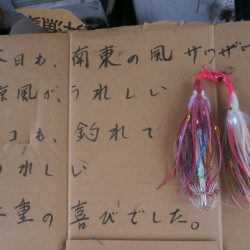 本日も、南東の風 ザワザワ
涼風が、うれしい
コも、釣れて
うれしい
二重の喜びでした。